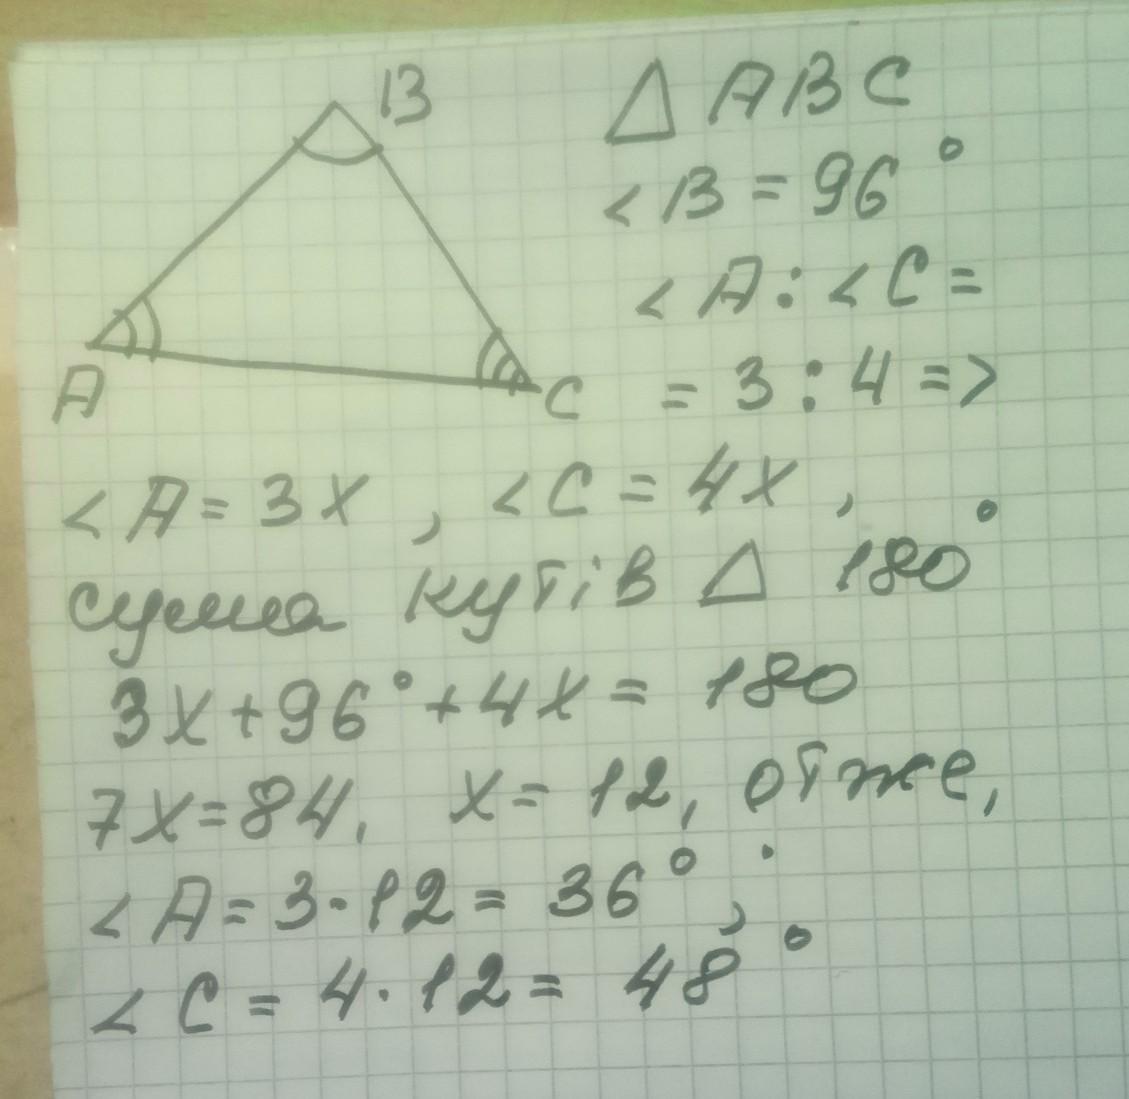 B
A
C
△ ABC
<B = 96°
<A : <C =
= 3 : 4 =>
<A = 3x, <C = 4x,
сума кутів △ 180°
3x + 96° + 4x = 180
7x = 84, x = 12, отже,
<A = 3·12 = 36°,
<C = 4·12 = 48°